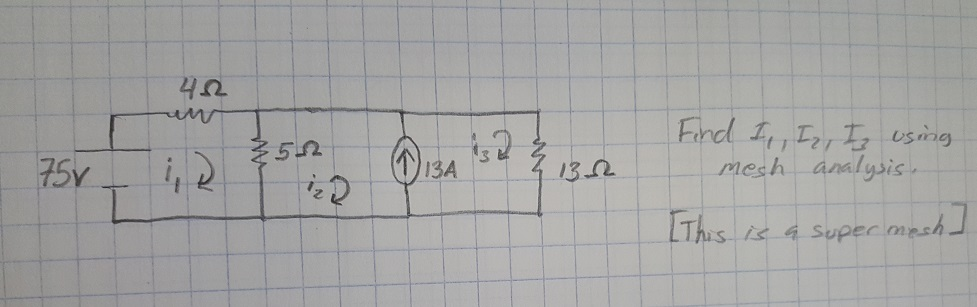 4Ω
75v
i₁
5Ω
i₂
13A
i₃
13Ω
Find I₁, I₂, I₃ using
mesh analysis.
[This is a super mesh]